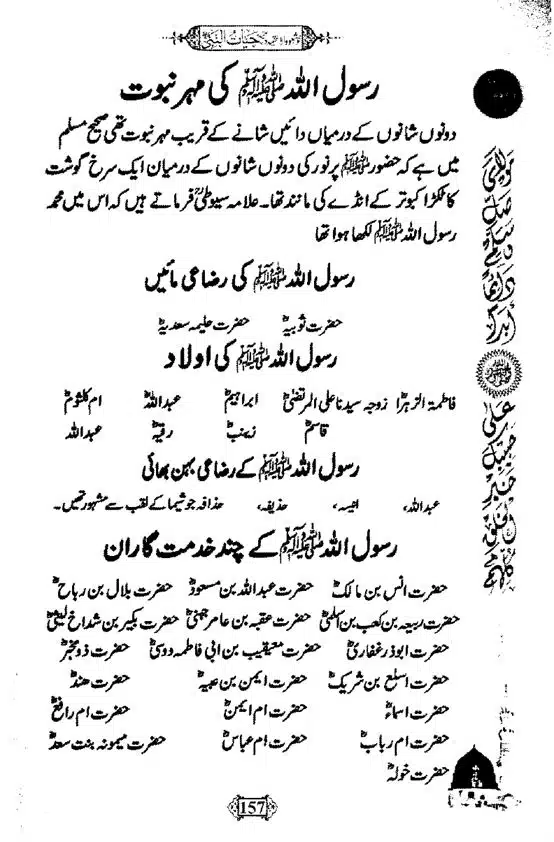 رسول اللہ ﷺ کی مہر نبوت
دونوں شانوں کے درمیاں دائیں شانے کے قریب مہر نبوت تھی صحیح مسلم
میں ہے کہ حضور ﷺ پرنور کی دونوں شانوں کے درمیان ایک سرخ گوشت
کا ٹکڑا کبوتر کے انڈے کی مانند تھا۔ علامہ سیوطیؒ فرماتے ہیں کہ اس میں محمد
رسول اللہ ﷺ لکھا ہوا تھا
رسول اللہ ﷺ کی رضاعی مائیں
حضرت ثوبیہؓ حضرت حلیمہ سعدیہؓ
رسول اللہ ﷺ کی اولاد
فاطمۃ الزہراؓ زوجہ سیدنا علی المرتضیٰؓ ابراہیمؓ عبداللہؓ ام کلثومؓ
قاسمؓ زینبؓ رقیہؓ عبداللہ
رسول اللہ ﷺ کے رضاعی بہن بھائی
عبداللہ، انیسہ، حذیفہ، حذافہ جو شیما کے لقب سے مشہور تھیں۔
رسول اللہ ﷺ کے چند خدمت گاران
حضرت انس بن مالکؓ حضرت عبداللہ بن مسعودؓ حضرت بلال بن رباحؓ
حضرت ربیعہ بن کعب بن اسلمیؓ حضرت عقبہ بن عامر جہنیؓ حضرت بکیر بن شداخ لیثیؓ
حضرت ابوذر غفاریؓ حضرت معیقیب بن ابی فاطمہ دوسیؓ حضرت ذو مخبرؓ
حضرت اسلع بن شریکؓ حضرت ایمن بن عبیدؓ حضرت ھندؓ
حضرت اسماءؓ حضرت ام ایمنؓ حضرت ام رافعؓ
حضرت ام ربابؓ حضرت ام عباسؓ حضرت میمونہ بنت سعدؓ
حضرت خولہؓ
157
مولای صل وسلم دائما ابدا
علی حبیبک خیر الخلق کلهم